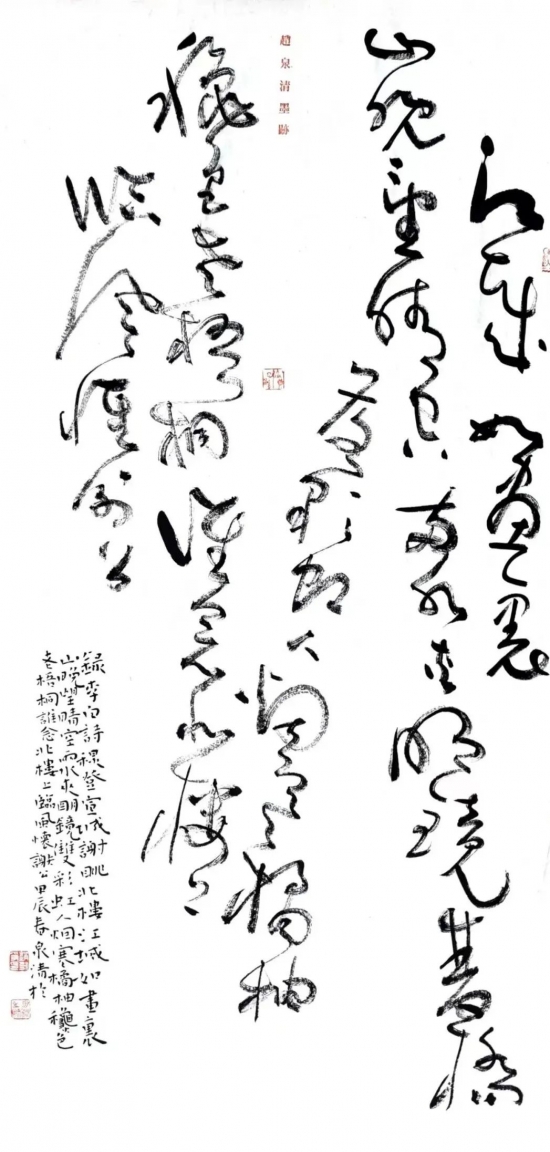 江城如畫裏
山晚望晴空兩水夾明鏡雙橋
落彩虹人烟寒橘柚
趙泉清墨跡
穐色老梧桐誰念北樓上
臨風懷謝公
錄李白詩穐登宣城謝眺北樓江城如畫裏
山晚望晴空兩水夾明鏡雙彩虹人烟寒橘柚穐色
老梧桐誰念北樓上臨風懷謝公甲辰春泉清於